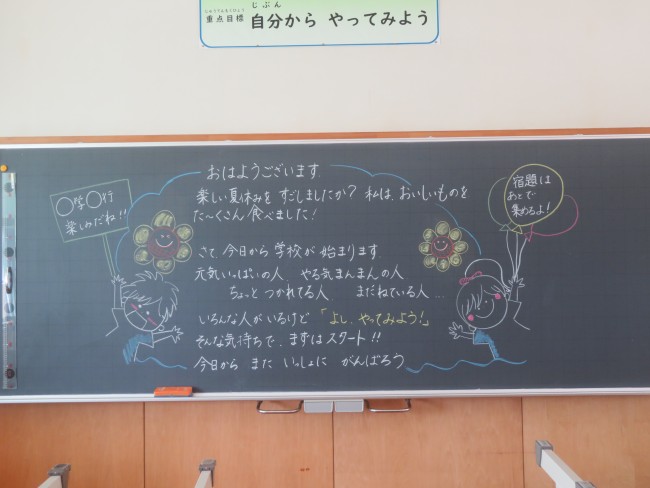 じゅうてんもくひょう
じぶん
重点目標 自分から やってみよう
おはようございます.
楽しい夏休みを すごしましたか? 私は、おいしいものを
た〜くさん 食べました!
さて、今日から 学校が 始まります.
元気いっぱいの人 やる気まんまんの人
ちょっと つかれてる人 まだねている人...
いろんな人がいるけど 「よし、やってみよう!」
そんな気持ちで、まずは スタート!!
今日から また いっしょに がんばろう
〇学〇行
楽しみだね!!
宿題は
あとで
集めるよ!